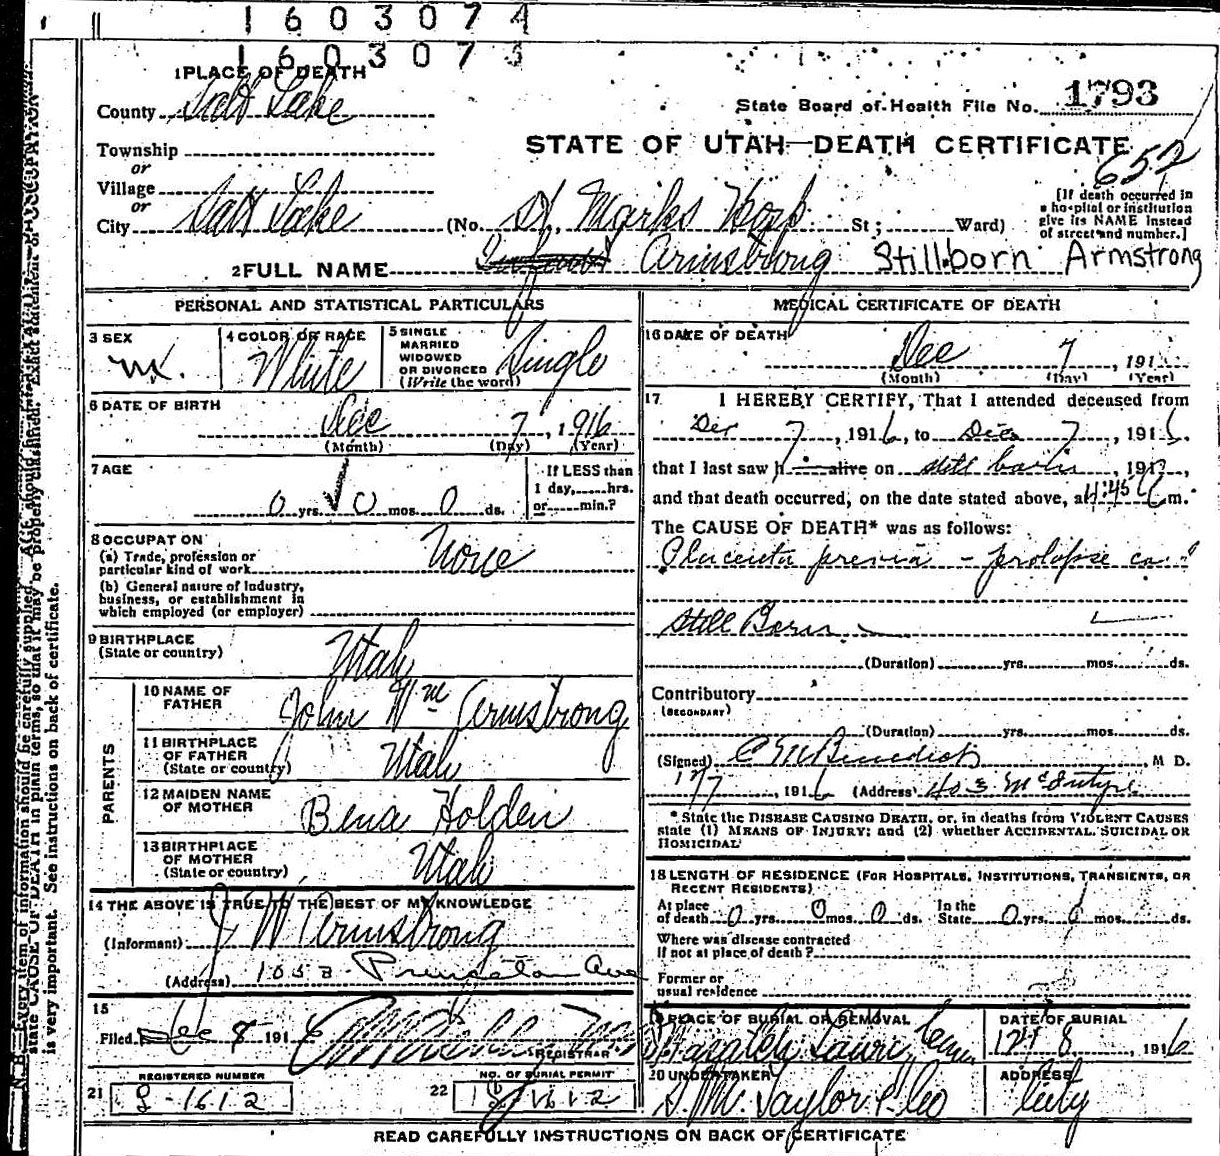 1 6 0 3 0 7 4
1 6 0 3 0 7
1 PLACE OF DEATH
County Salt Lake
State Board of Health File No. 1793
STATE OF UTAH—DEATH CERTIFICATE
652
Township
or
Village
or
City Salt Lake (No. St. Marks Hosp St; Ward)
[If death occurred in
a hospital or institution
give its NAME instead
of street and number.]
2 FULL NAME Armstrong Stillborn Armstrong
PERSONAL AND STATISTICAL PARTICULARS
3 SEX
m.
4 COLOR OR RACE
White
5 SINGLE
MARRIED
WIDOWED
OR DIVORCED
(Write the word)
Single
6 DATE OF BIRTH
Dec 7, 1916
(Month) (Day) (Year)
7 AGE
0 yrs. 0 mos. 0 ds.
If LESS than
1 day, hrs.
or min.?
8 OCCUPATION
(a) Trade, profession or
particular kind of work None
(b) General nature of industry,
business, or establishment in
which employed (or employer)
9 BIRTHPLACE
(State or country) Utah
PARENTS
10 NAME OF
FATHER John Wm Armstrong
11 BIRTHPLACE
OF FATHER
(State or country) Utah
12 MAIDEN NAME
OF MOTHER Bena Holden
13 BIRTHPLACE
OF MOTHER
(State or country) Utah
14 THE ABOVE IS TRUE TO THE BEST OF MY KNOWLEDGE
(Informant) J W Armstrong
(Address) Princeton Ave
15
Filed Dec 8 1916
REGISTRAR
REGISTERED NUMBER
21 1612
NO. OF BURIAL PERMIT
22 1612
MEDICAL CERTIFICATE OF DEATH
16 DATE OF DEATH
Dec 7, 191
(Month) (Day) (Year)
17 I HEREBY CERTIFY, That I attended deceased from
Dec 7, 1916, to Dec 7, 1916.
that I last saw h alive on still born, 191
and that death occurred, on the date stated above, at 4:45 a m.
The CAUSE OF DEATH* was as follows:
Placenta previa - prolapse
Still Born
(Duration) yrs. mos. ds.
Contributory
(SECONDARY)
(Duration) yrs. mos. ds.
(Signed) C M Benedict, M D.
12/7, 1916 (Address) McIntyre
* State the DISEASE CAUSING DEATH, or, in deaths from VIOLENT CAUSES
state (1) MEANS OF INJURY; and (2) whether ACCIDENTAL, SUICIDAL OR
HOMICIDAL
18 LENGTH OF RESIDENCE (FOR HOSPITALS, INSTITUTIONS, TRANSIENTS, OR
RECENT RESIDENTS)
At place
of death 0 yrs. 0 mos. 0 ds.
In the
State 0 yrs. mos. ds.
Where was disease contracted
if not at place of death?
Former or
usual residence
19 PLACE OF BURIAL OR REMOVAL
Wasatch Lawn Cem.
DATE OF BURIAL
12/8, 1916
20 UNDERTAKER
S. M. Taylor & Co
ADDRESS
City
READ CAREFULLY INSTRUCTIONS ON BACK OF CERTIFICATE
N. B.—Every item of information should be carefully supplied. AGE should be
state CAUSE OF DEATH in plain terms, so that it may be properly classified. Exact statement of OCCUPATION
is very important. See instructions on back of certificate.